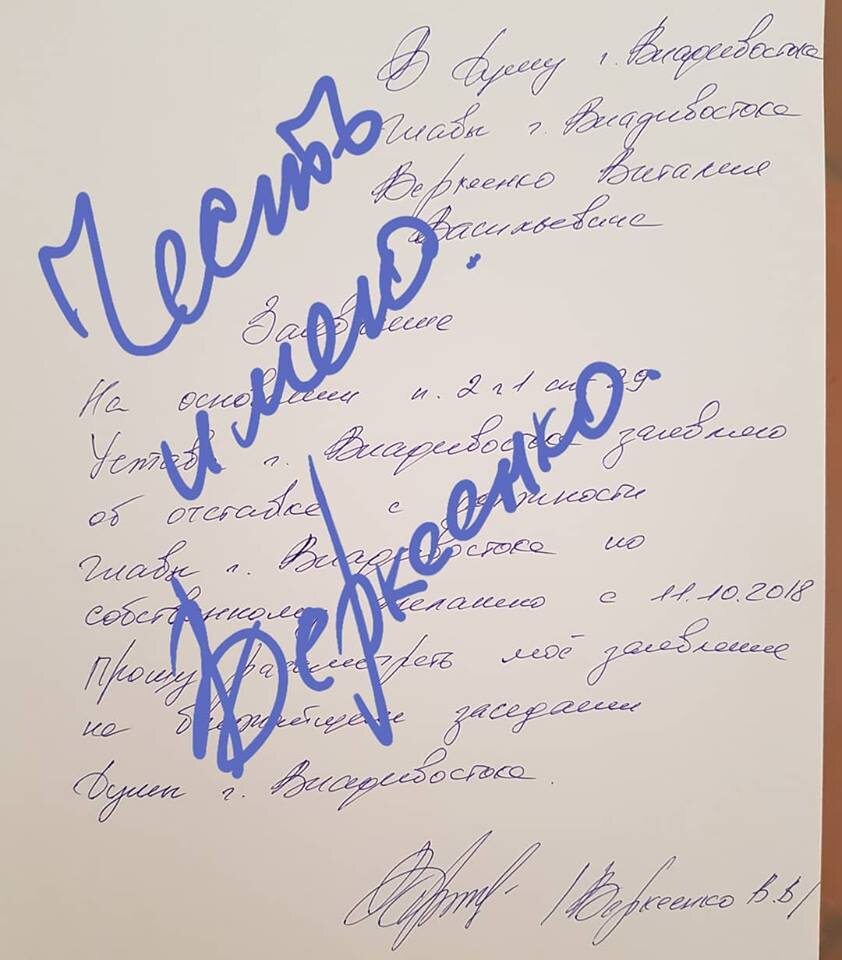 В Думу г. Владивостока
Главы г. Владивостока
Веркеенко Виталия
Васильевича
Заявление
На основании п. 2 ч 1 ст 29
Устава г. Владивостока заявляю
об отставке с должности
Главы г. Владивостока по
собственному желанию с 11.10.2018
Прошу рассмотреть моё заявление
на ближайшем заседании
Думы г. Владивостока.
/Веркеенко В.В/
Честь
имею.
Веркеенко.